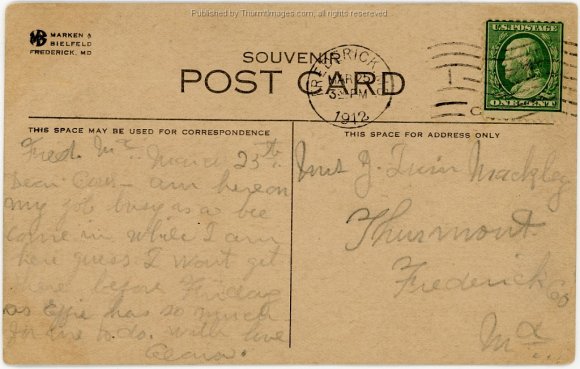 Published by ThurmtImages.com, all rights reserved
MARKEN &
BIELFELD
FREDERICK, MD
U.S. POSTAGE
ONE CENT
SOUVENIR
POST CARD
FREDERICK, MD.
MAR 25
3 PM
1912
THIS SPACE MAY BE USED FOR CORRESPONDENCE
THIS SPACE FOR ADDRESS ONLY
Fred. Md. March 25th
Dear Cous- am here on
my job busy as a bee
come in while I am
here guess I wont get
there before Friday
as Effie has so much
for me to do. with love
Mrs J. Mackley
Thurmont.
Frederick Co
Md